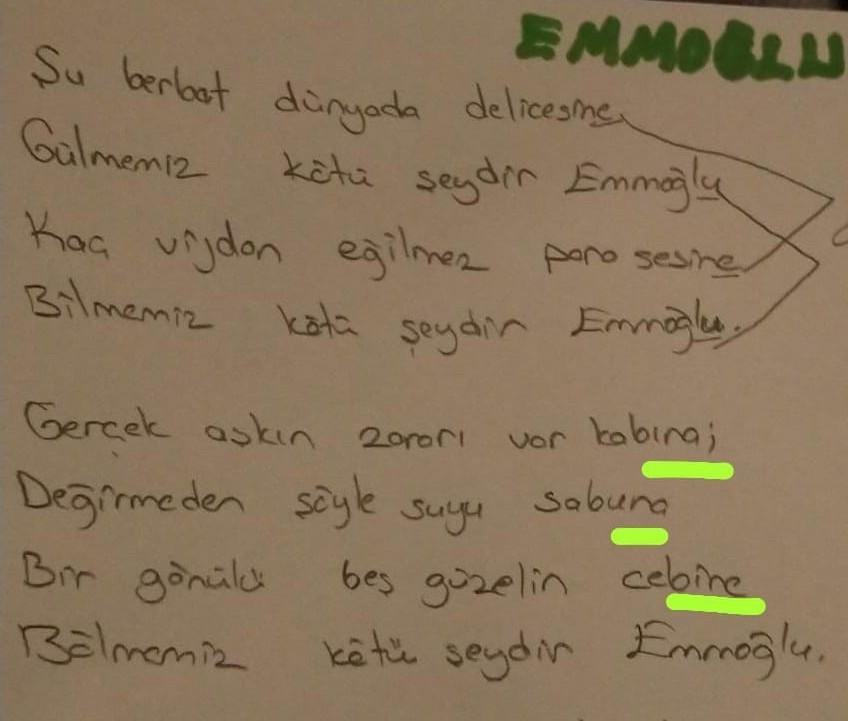 EMMOĞLU
Şu berbat dünyada delicesine
Gülmemiz kötü şeydir Emmoğlu
Kaç vijdan eğilmez para sesine
Bilmemiz kötü şeydir Emmoğlu.
Gerçek aşkın zararı var kabına;
Değirmeden söyle suyu sabuna
Bir gönülü beş güzelin cebine
Bölmemiz kötü şeydir Emmoğlu.